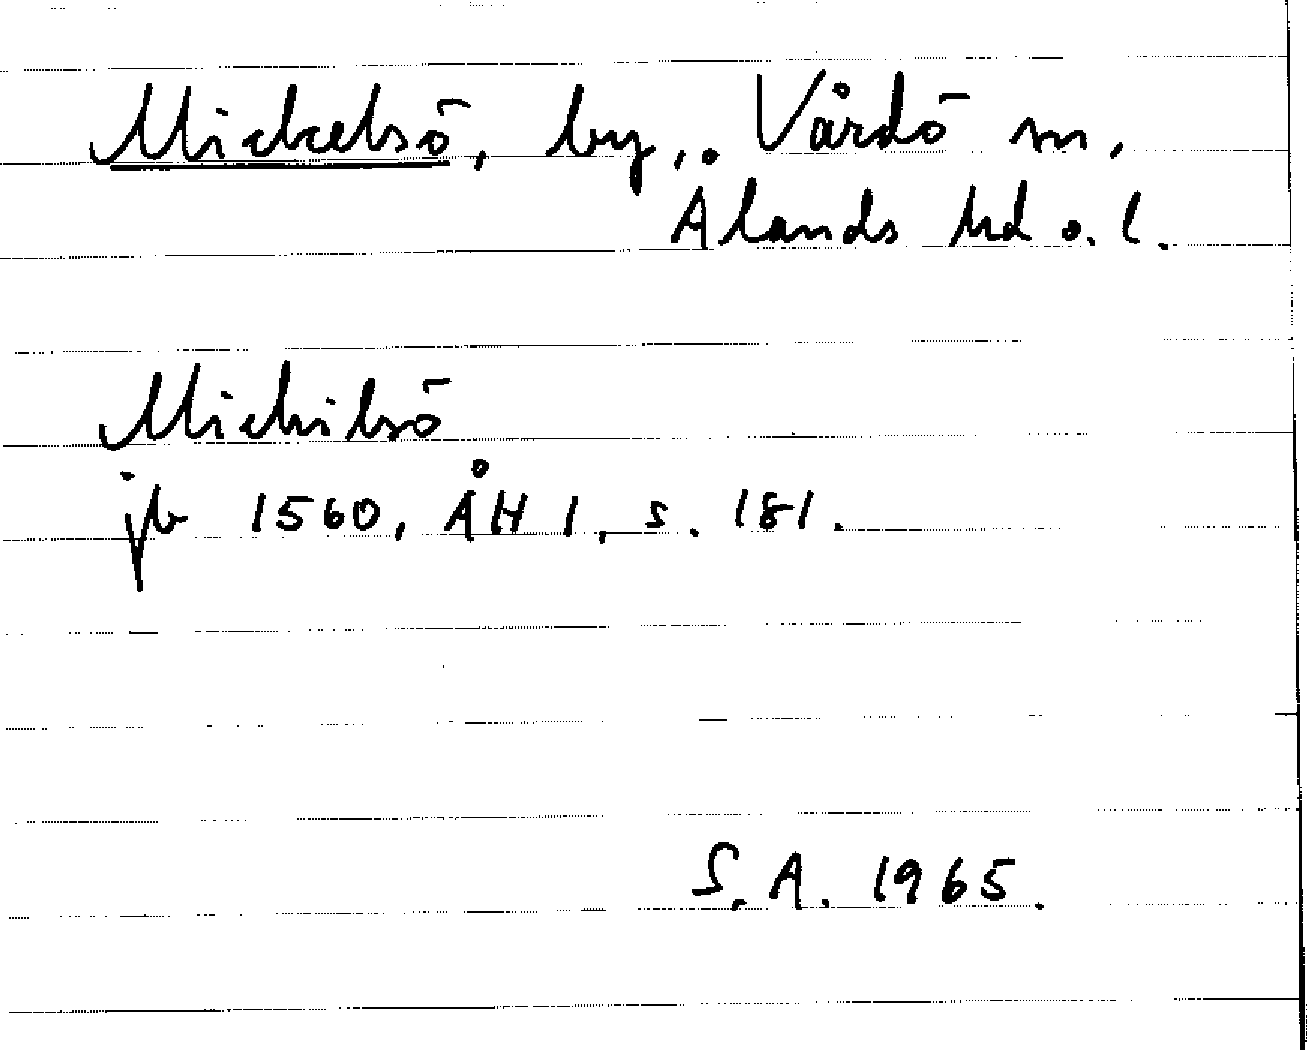 Mickelsö, by, Vårdö sn,
Ålands hd o. l.
Michilsö
jb 1560, ÅH 1, s. 181.
S.A. 1965.